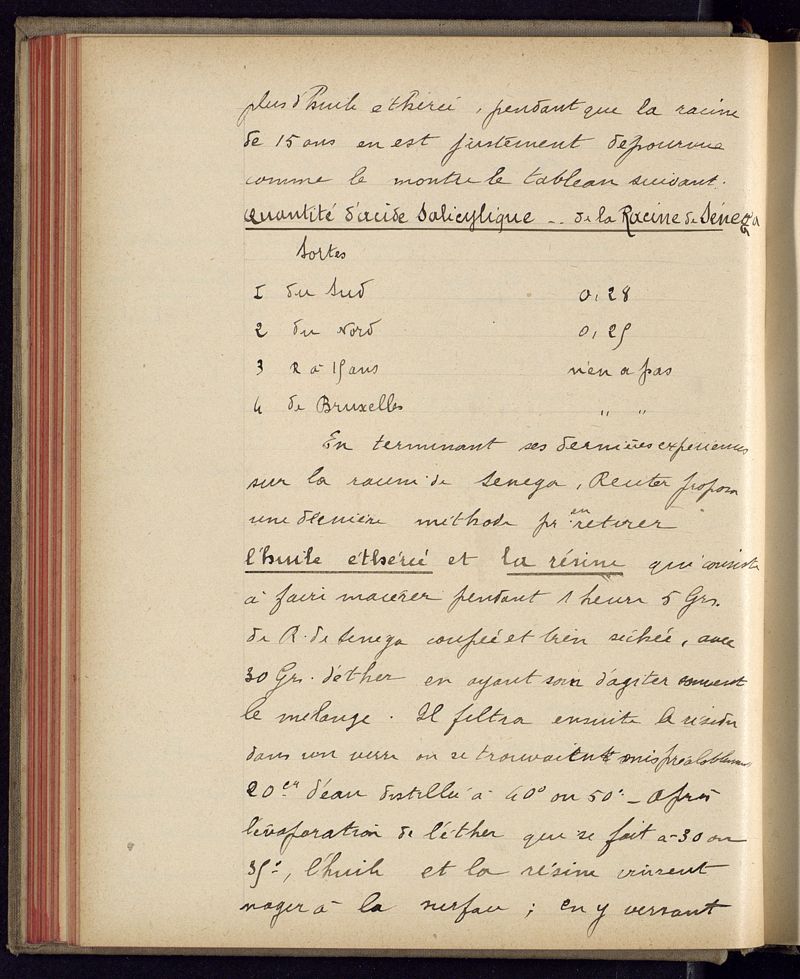 plus d'huile etherée, pendant que la racine
de 15 ans en est justement depourvue
comme le montre le tableau suivant.
Quantité d'acide Salicylique -- de la Racine de Sénega
Sortes
1 du Sud 0,28
2 du Nord 0,25
3 R à 15 ans n'en a pas
4 de Bruxelles " "
En terminant ses dernières experiences
sur la racine de Senega, Reuter proposa
une dernière méthode pr en retirer
l'huile éthérée et la résine qui consiste
à faire macerer pendant 1 heure 5 Grs.
de R. de Senega coupée et bien sechée, avec
30 Grs. d'éther en ayant soin d'agiter souvent
le melange. Il filtra ensuite le residu
dans un verre ou se trouvaient mis préalablement
20 cr d'eau distillée à 40° ou 50° - Après
l'évaporation de l'éther que se fait à 30 ou
35°, l'huile et la résine vinrent
nager à la surface ; en y versant